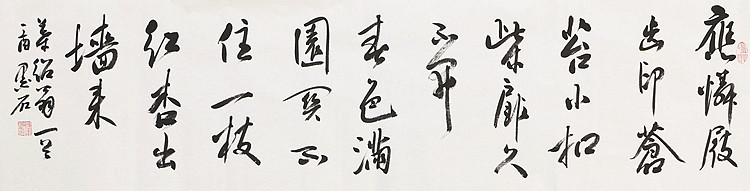 應憐屐
齒印蒼
苔小扣
柴扉久
不開
春色滿
園関不
住一枝
紅杏出
墙来
葉紹翁一
石